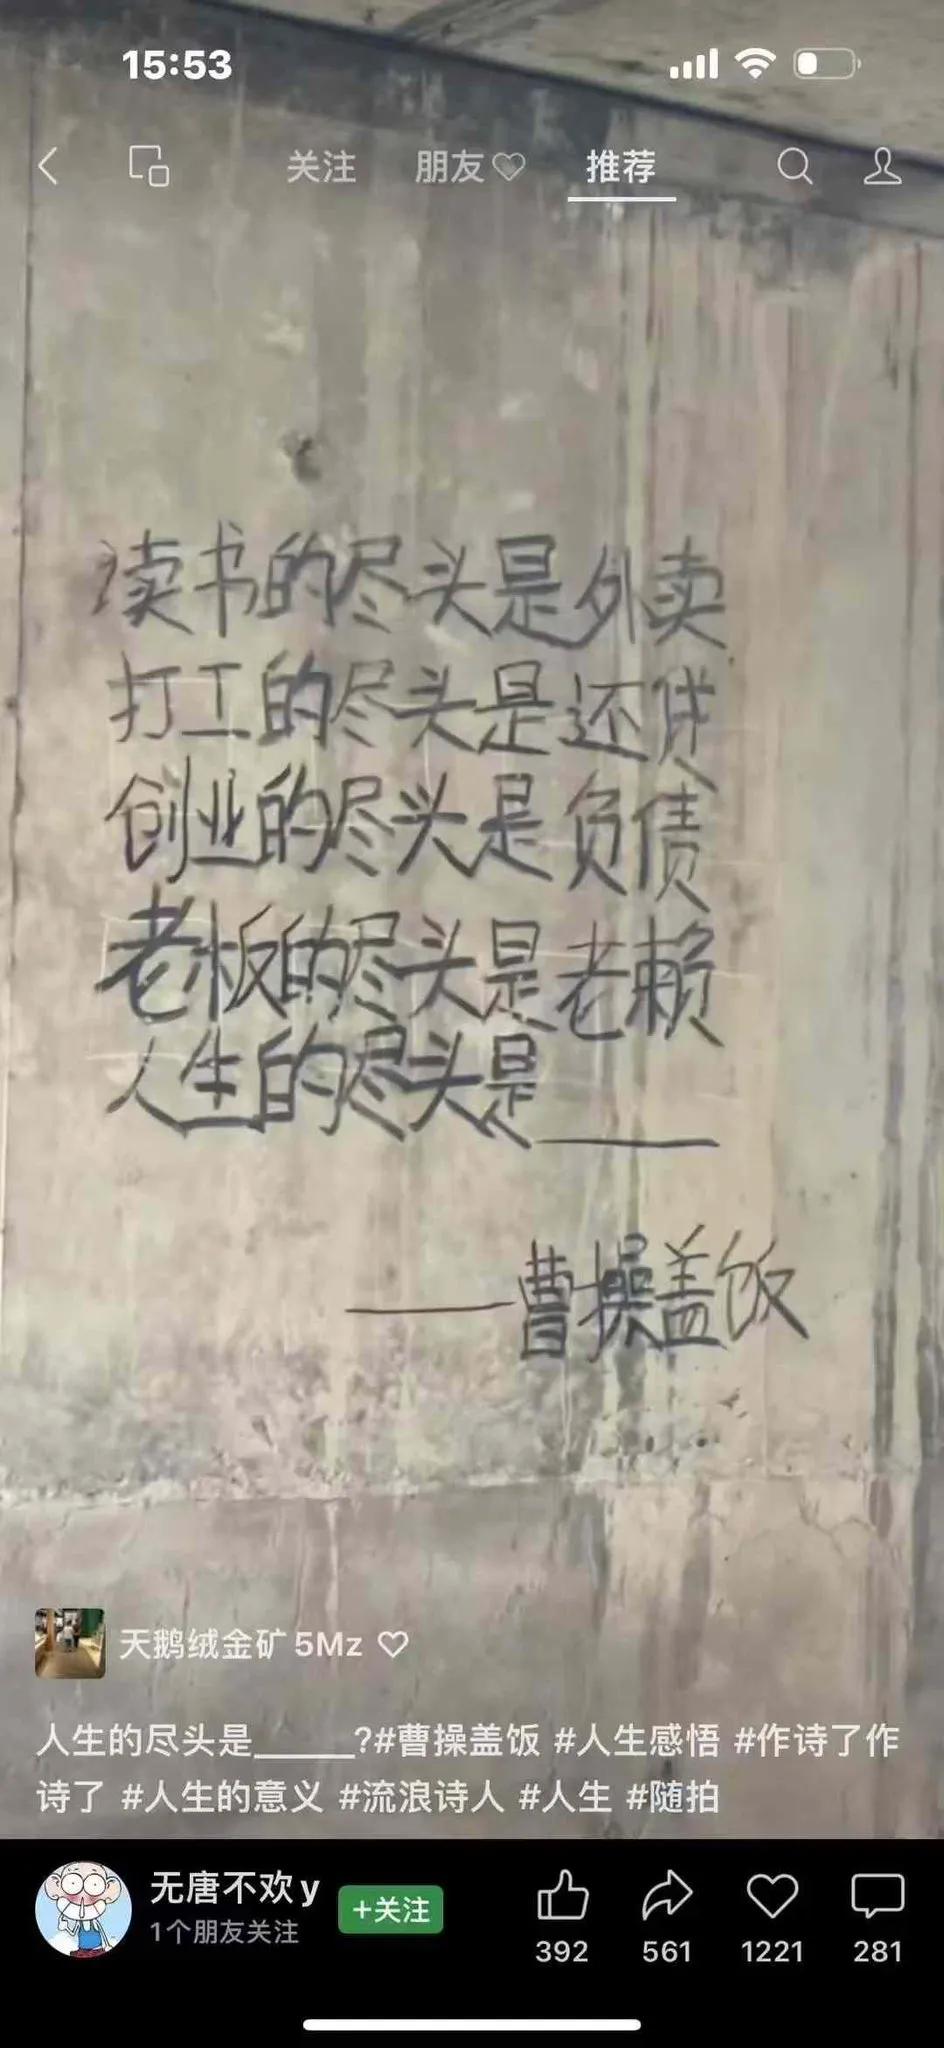 15:53
关注 朋友 推荐
读书的尽头是外卖
打工的尽头是还贷
创业的尽头是负债
老板的尽头是老赖
人生的尽头是____
——曹操盖饭
天鹅绒金矿5Mz
人生的尽头是_____?#曹操盖饭 #人生感悟 #作诗了作
诗了 #人生的意义 #流浪诗人 #人生 #随拍
无唐不欢y
+关注
1个朋友关注
392 561 1221 281